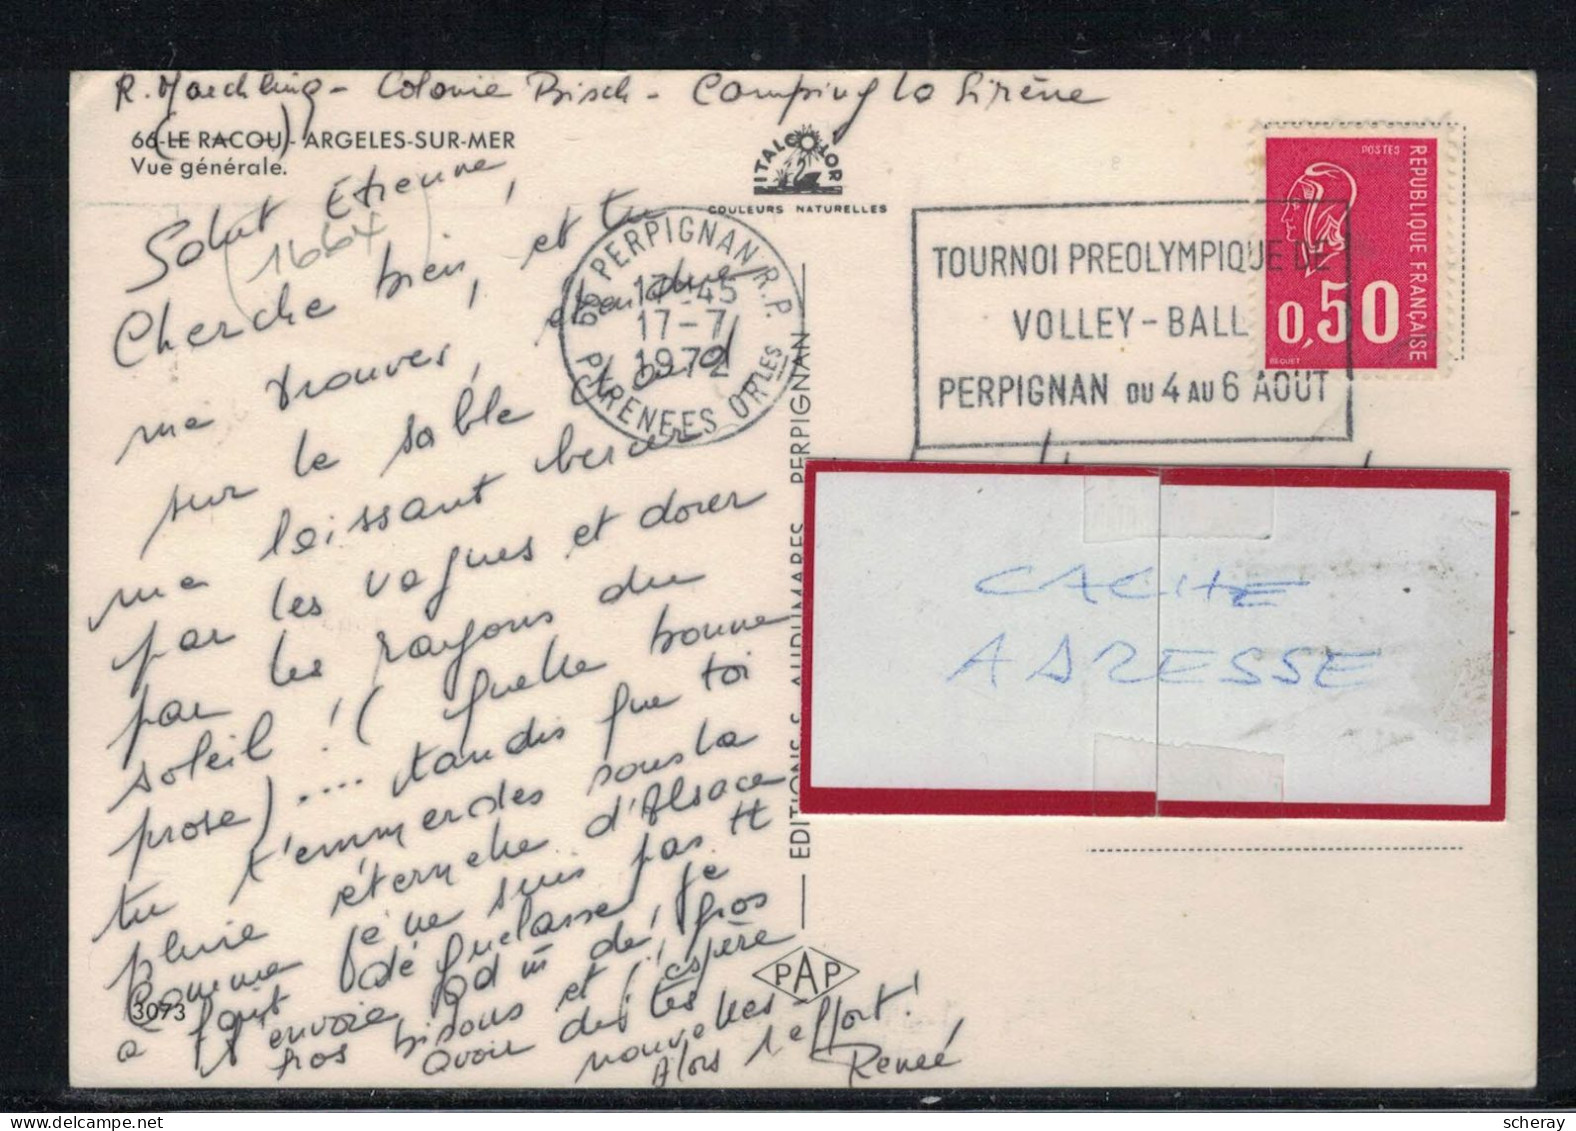 R. Maechling - Colonie Bisch - Camping la Sirène
66-(LE RACOU)-ARGELES-SUR-MER
Vue générale.
ITALCOLOR
COULEURS NATURELLES
Salut Etienne,
1664
Cherche bien, et tu
me trouves, étendue
sur le sable chaud
me laissant bercer
par les vagues et dorer
par les rayons du
soleil ! (quelle bonne
prose) .... tandis que toi
tu t'emmerdes sous la
pluie éternelle d'Alsace
Comme je ne suis pas
a fait dégueulasse, je
t'envoie qd m̂ de gros
gros bisous et j'espère
avoir de tes
nouvelles
Alors 1 effort !
Renée
3073
66 PERPIGNAN R.P.
17-45
17-7
1972
PYRENEES ORLES
TOURNOI PREOLYMPIQUE DE
VOLLEY-BALL
PERPIGNAN DU 4 AU 6 AOUT
POSTES
REPUBLIQUE FRANÇAISE
0,50
BEQUET
EDITIONS S. AUDUMARES PERPIGNAN
PAP
CACHE
ADRESSE
scheray